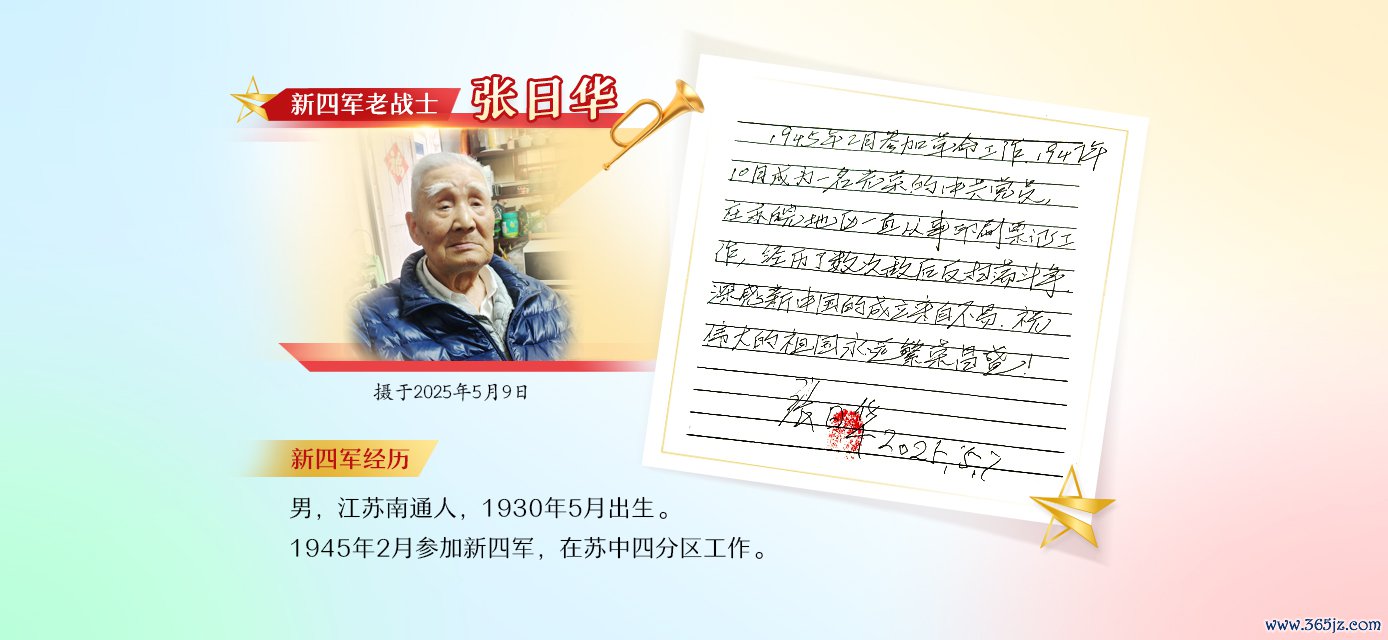 新四军老战士 张日华
摄于2025年5月9日
1945年2月参加革命工作,1947年
10月成为一名光荣的中共党员,
在苏皖地区一直从事印刷票证工
作,经历了数次敌后反扫荡斗争,
深感新中国的成立来自不易.祝
伟大的祖国永远繁荣昌盛!
张日华
2025.5.7
新四军经历
男,江苏南通人,1930年5月出生。
1945年2月参加新四军,在苏中四分区工作。
www.365jz.com